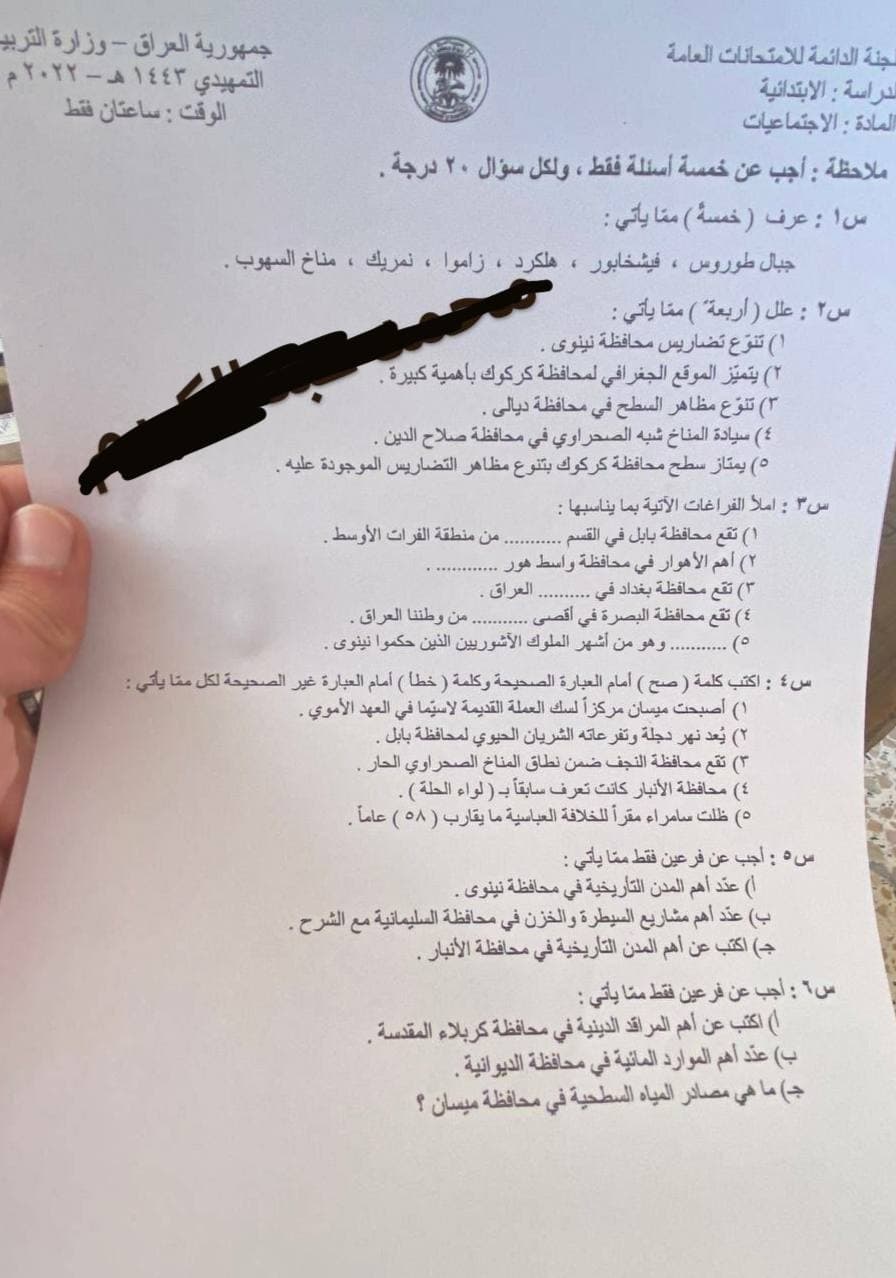 لجنة الدائمة للامتحانات العامة
الدراسة : الابتدائية
المادة : الاجتماعيات
جمهورية العراق – وزارة التربي
التمهيدي ١٤٤٣ هـ – ٢٠٢٢ م
الوقت : ساعتان فقط
ملاحظة : أجب عن خمسة أسئلة فقط ، ولكل سؤال ٢٠ درجة .
س١ : عرف ( خمسةً ) ممّا يأتي :
جبال طوروس ، فيشخابور ، هلكرد ، زاموا ، نمريك ، مناخ السهوب .
س٢ : علل ( أربعةً ) ممّا يأتي :
١) تنوّع تضاريس محافظة نينوى .
٢) يتميّز الموقع الجغرافي لمحافظة كركوك بأهمية كبيرة .
٣) تنوّع مظاهر السطح في محافظة ديالى .
٤) سيادة المناخ شبه الصحراوي في محافظة صلاح الدين .
٥) يمتاز سطح محافظة كركوك بتنوع مظاهر التضاريس الموجودة عليه .
س٣ : املأ الفراغات الآتية بما يناسبها :
١) تقع محافظة بابل في القسم .......... من منطقة الفرات الأوسط .
٢) أهم الأهوار في محافظة واسط هور ............ .
٣) تقع محافظة بغداد في .......... العراق .
٤) تقع محافظة البصرة في أقصى ........... من وطننا العراق .
٥) ........... وهو من أشهر الملوك الآشوريين الذين حكموا نينوى .
س٤ : اكتب كلمة ( صح ) أمام العبارة الصحيحة وكلمة ( خطأ ) أمام العبارة غير الصحيحة لكل ممّا يأتي :
١) أصبحت ميسان مركزاً لسك العملة القديمة لاسيّما في العهد الأموي .
٢) يُعد نهر دجلة وتفرعاته الشريان الحيوي لمحافظة بابل .
٣) تقع محافظة النجف ضمن نطاق المناخ الصحراوي الحار .
٤) محافظة الأنبار كانت تعرف سابقاً بـ ( لواء الحلة ) .
٥) ظلت سامراء مقراً للخلافة العباسية ما يقارب ( ٥٨ ) عاماً .
س٥ : أجب عن فرعين فقط ممّا يأتي :
أ) عدّد أهم المدن التأريخية في محافظة نينوى .
ب) عدّد أهم مشاريع السيطرة والخزن في محافظة السليمانية مع الشرح .
جـ) اكتب عن أهم المدن التأريخية في محافظة الأنبار .
س٦ : أجب عن فرعين فقط ممّا يأتي :
أ) اكتب عن أهم المراقد الدينية في محافظة كربلاء المقدسة .
ب) عدّد أهم الموارد المائية في محافظة الديوانية .
جـ) ما هي مصادر المياه السطحية في محافظة ميسان ؟